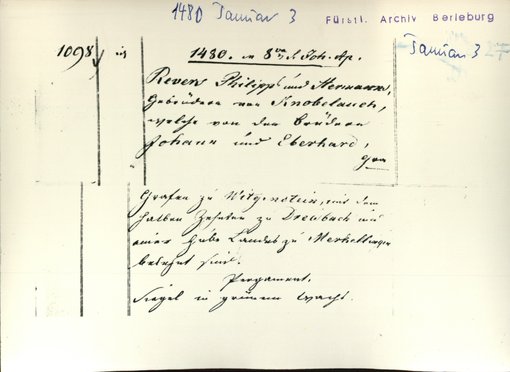 1480 Januar 3
Fürstl. Archiv Berleburg
Januar 3
1098
1480. in 8va S. Joh. Ap.
Revers Philipp und Hermann,
Gebrüdern von Knobelauch,
welche von den Brüdern
Johann und Eberhard,
Gra
Grafen zu Witgenstein, mit dem
halben Zehnten zu Dreisbach und
einer Hube Landes zu Merkelingen
belehnt sind.
Pergament.
Siegel in grünem Wachs.